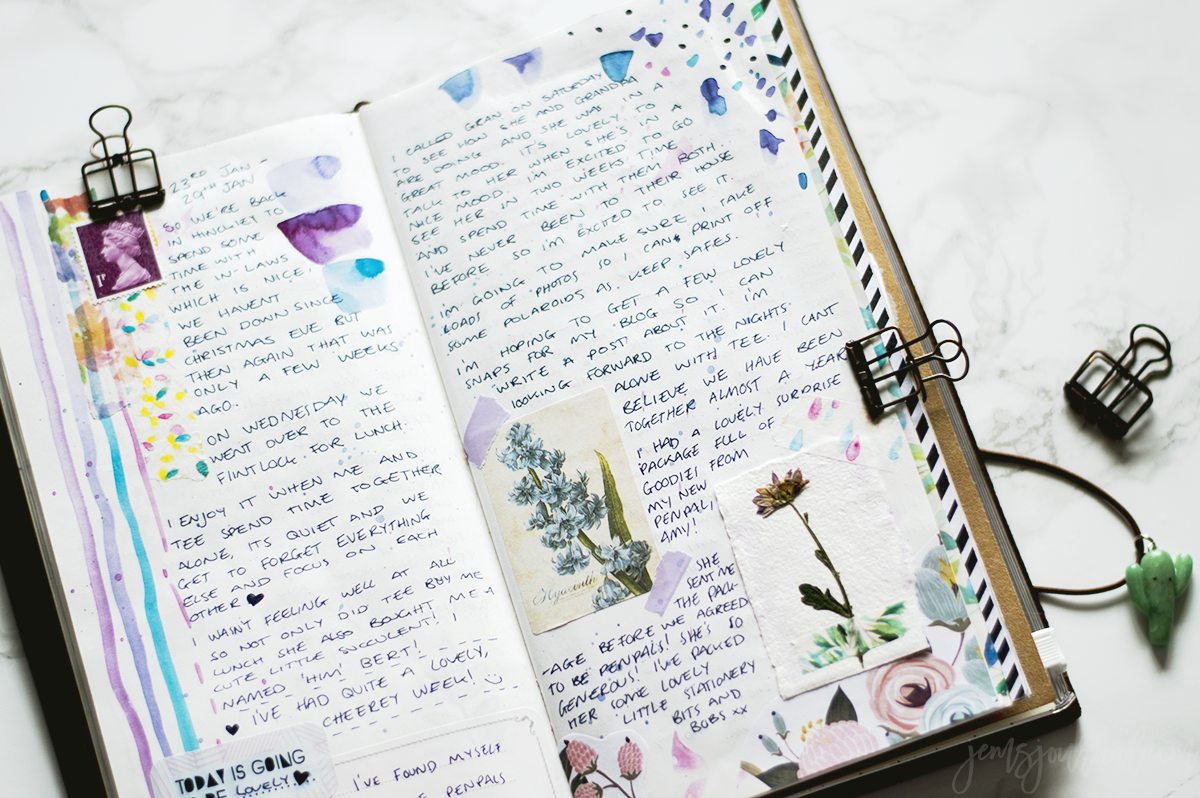 23RD JAN -
29TH JAN
SO WE'RE BACK
IN HINCKLEY TO
SPEND SOME
TIME WITH
THE IN-LAWS
WHICH IS NICE!
WE HAVENT
BEEN DOWN SINCE
CHRISTMAS EVE BUT
THEN AGAIN THAT WAS
ONLY A FEW WEEKS
AGO.
ON WEDNESDAY WE
WENT OVER TO THE
FLINTLOCK FOR LUNCH.
I ENJOY IT WHEN ME AND
TEE SPEND TIME TOGETHER
ALONE, ITS QUIET AND WE
GET TO FORGET EVERYTHING
ELSE AND FOCUS ON EACH
OTHER ♥
I WASN'T FEELING WELL AT ALL
SO NOT ONLY DID TEE BUY ME
LUNCH SHE ALSO BOUGHT ME A
CUTE LITTLE SUCCULENT! I
NAMED 'HIM' BERT!
♥ I'VE HAD QUITE A LOVELY,
CHEEREY WEEK! :)
1P
TODAY IS GOING
TO BE LOVELY ♥.
I'VE FOUND MYSELF
PENPALS
I CALLED GRAN ON SATURDAY
TO SEE HOW SHE AND GRANDPA
ARE DOING AND SHE WAS IN A
GREAT MOOD. IT'S LOVELY TO
TALK TO HER WHEN SHE'S IN A
NICE MOOD. I'M EXCITED TO GO
SEE HER IN TWO WEEKS TIME
AND SPEND TIME WITH THEM BOTH.
I'VE NEVER BEEN TO THEIR HOUSE
BEFORE SO I'M EXCITED TO SEE IT.
I'M GOING TO MAKE SURE I TAKE
LOADS OF PHOTOS SO I CAN PRINT OFF
SOME POLAROIDS AS KEEP SAFES.
I'M HOPING TO GET A FEW LOVELY
SNAPS FOR MY BLOG SO I CAN
WRITE A POST ABOUT IT. I'M
LOOKING FORWARD TO THE NIGHTS
ALONE WITH TEE. I CANT
BELIEVE WE HAVE BEEN
TOGETHER ALMOST A YEAR
I HAD A LOVELY SURPRISE
PACKAGE FULL OF
GOODIES FROM
MY NEW
PENPAL,
AMY!
SHE
SENT ME
THE PACK
-AGE BEFORE WE AGREED
TO BE PENPALS! SHE'S SO
GENEROUS! I'VE PACKED
HER SOME LOVELY
LITTLE STATIONERY
BITS AND
BOBS XX
Hyacinth